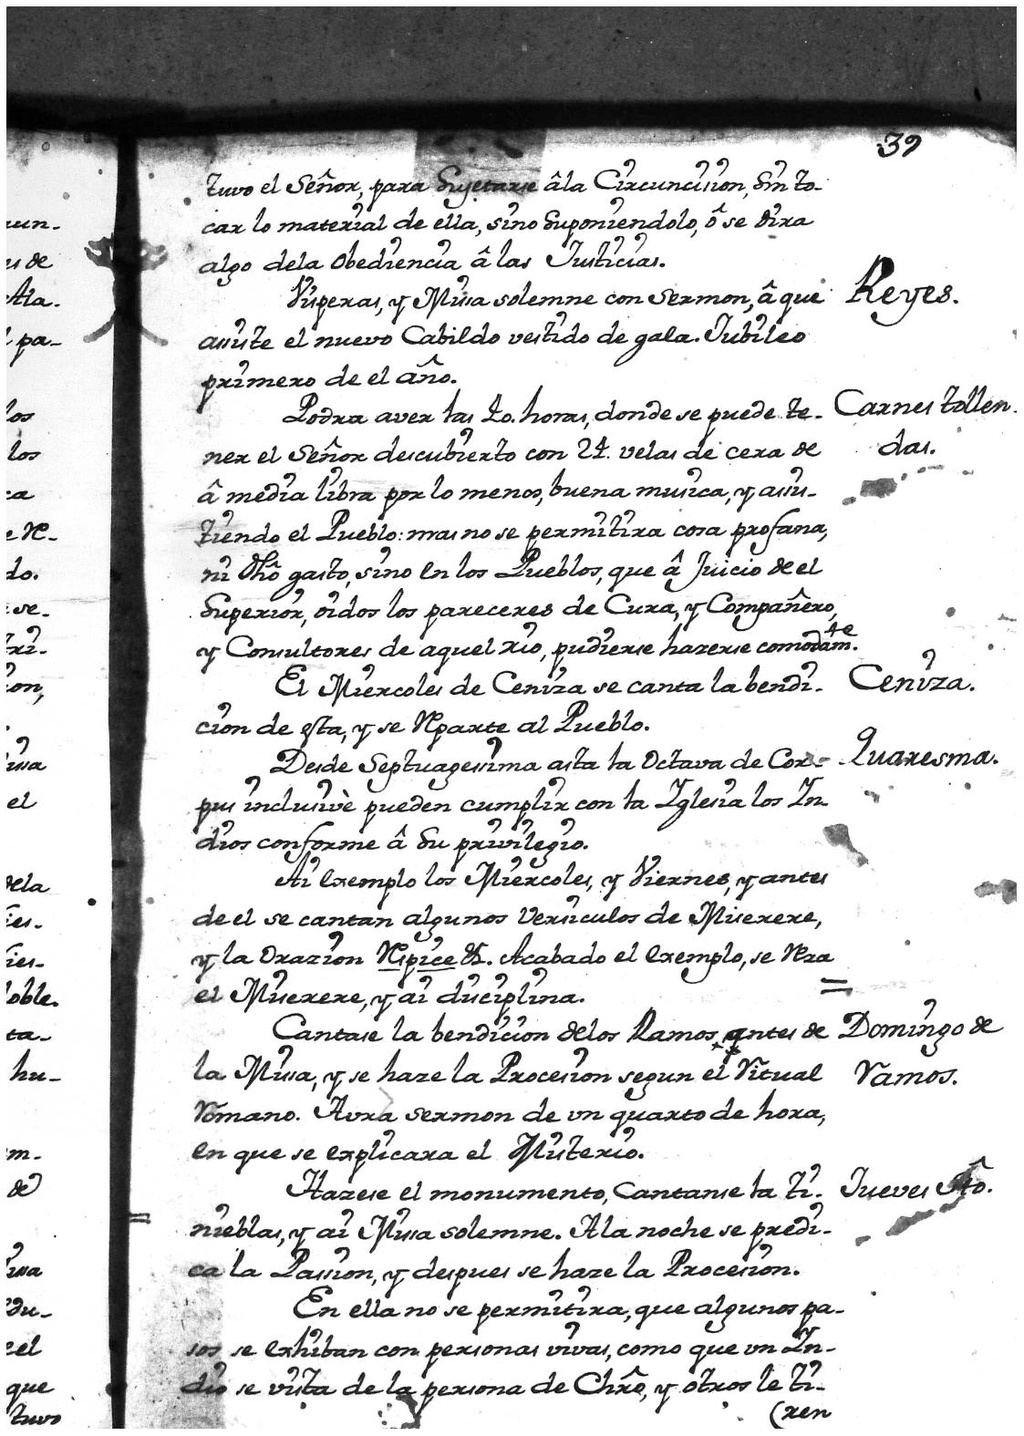 39
tuvo el Señor, para Sujetarse âla Circuncision, Sin to-
car lo material de ella, sino Suponiendolo, ô se dira
algo dela Obediencia â las Justicias.
Visperas, y Missa solemne con Sermon, â que
Reyes.
assiste el nuevo Cabildo vestido de gala. Jubileo
primero de el año.
Podra aver las 40. horas, donde se puede te-
Carnes tollen-
ner el Señor descubierto con 24. velas de cera de
das.
â media libra por lo menos, buena musica, y assis-
tiendo el Pueblo: mas no se permitira cosa profana,
ni dhô gasto, sino en los Pueblos, que â Juicio de el
Superior, oidos los pareceres de Cura, y Compañero,
y Consultores de aquel rio, pudiese hazerse comodamte.
El Miercoles de Ceniza se canta la bendi-
Ceniza.
cion de esta, y se Reparte al Pueblo.
Desde Septuagessima asta la Octava de Cor-
Quaresma.
pus inclusivè pueden cumplir con la Iglesia los In-
dios conforme â Su privilegio.
Ai exemplo los Miercoles, y Viernes, y antes
de el se cantan algunos Versiculos de Miserere,
y la Orazion Respice &. Acabado el exemplo, se Reza
el Miserere, y ai disciplina.
Cantase la bendicion delos Ramos antes de
Domingo de
la Missa, y se haze la Procesion segun el Ritual
Ramos.
Romano. Avra sermon de vn quarto de hora,
en que se explicara el Misterio.
Hazese el monumento, Cantanse la ti-
Jueves Sto.
nieblas, y ai Missa solemne. Ala noche se predi-
ca la Passion, y despues se haze la Procesion.
En ella no se permitira, que algunos pa-
sos se exhiban con personas vivas, como que vn In-
dio se vista de la persona de Chrô, y otros le ti-
(ren
cun-
us de
Ala-
l pa-
los
los
ca
e Re-
do.
se-
tri-
ion,
issa
el
dela
ies-
ies-
oble.
ta-
hu-
m-
de
issa
du-
el
que
tuvo